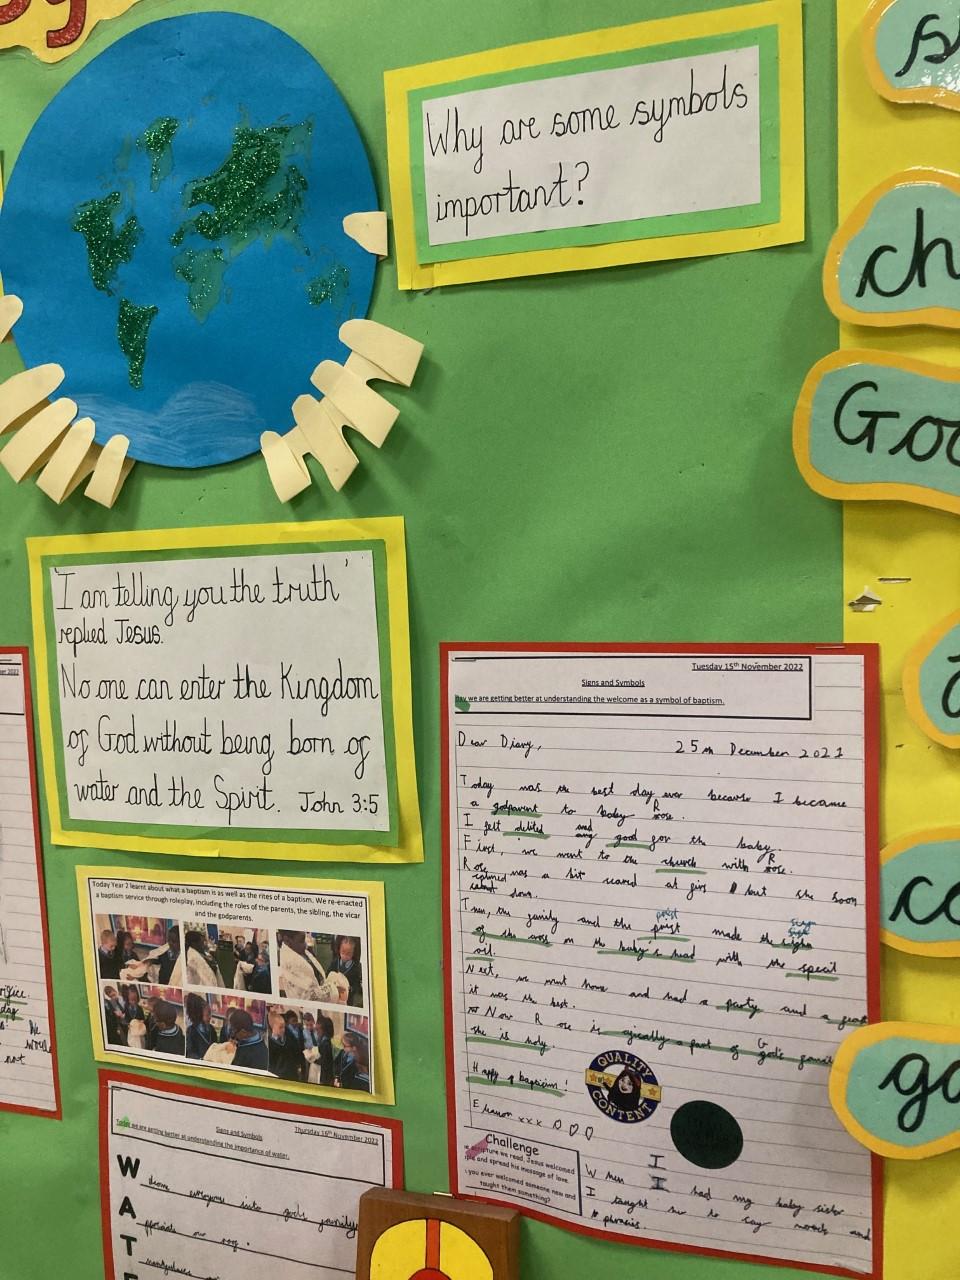 Why are some symbols
important?
'I am telling you the truth'
replied Jesus.
No one can enter the Kingdom
of God without being born of
water and the Spirit. John 3:5
Today Year 2 learnt about what a baptism is as well as the rites of a baptism. We re-enacted
a baptism service through roleplay, including the roles of the parents, the sibling, the vicar
and the godparents.
Signs and Symbols Thursday 16th November 2022
Today we are getting better at understanding the importance of water.
W
everyone into gods family
A
our
T
Tuesday 15th November 2022
Signs and Symbols
we are getting better at understanding the welcome as a symbol of baptism.
Dear Diary, 25th December 2021
Today was the best day ever because I became
a godparent to baby Rose.
I felt delited and good for the baby.
First, we went to the church with Rose.
Rose was a bit scared at first but she soon
down.
Then, the family and the priest made the sign
of the cross on the baby's head with the specil
oil.
Next, we went home and had a party and a feast
it was the best.
Now Rose is ogically a part of God's famil
she is holy.
Happy baptism!
xxx
QUALITY
CONTENT
Challenge
we read, Jesus welcomed
and spread his message of love.
you ever welcomed someone new and
taught them something?
When I had my baby sister
I taught her to say words and
phrasies.
ch
co
go
not